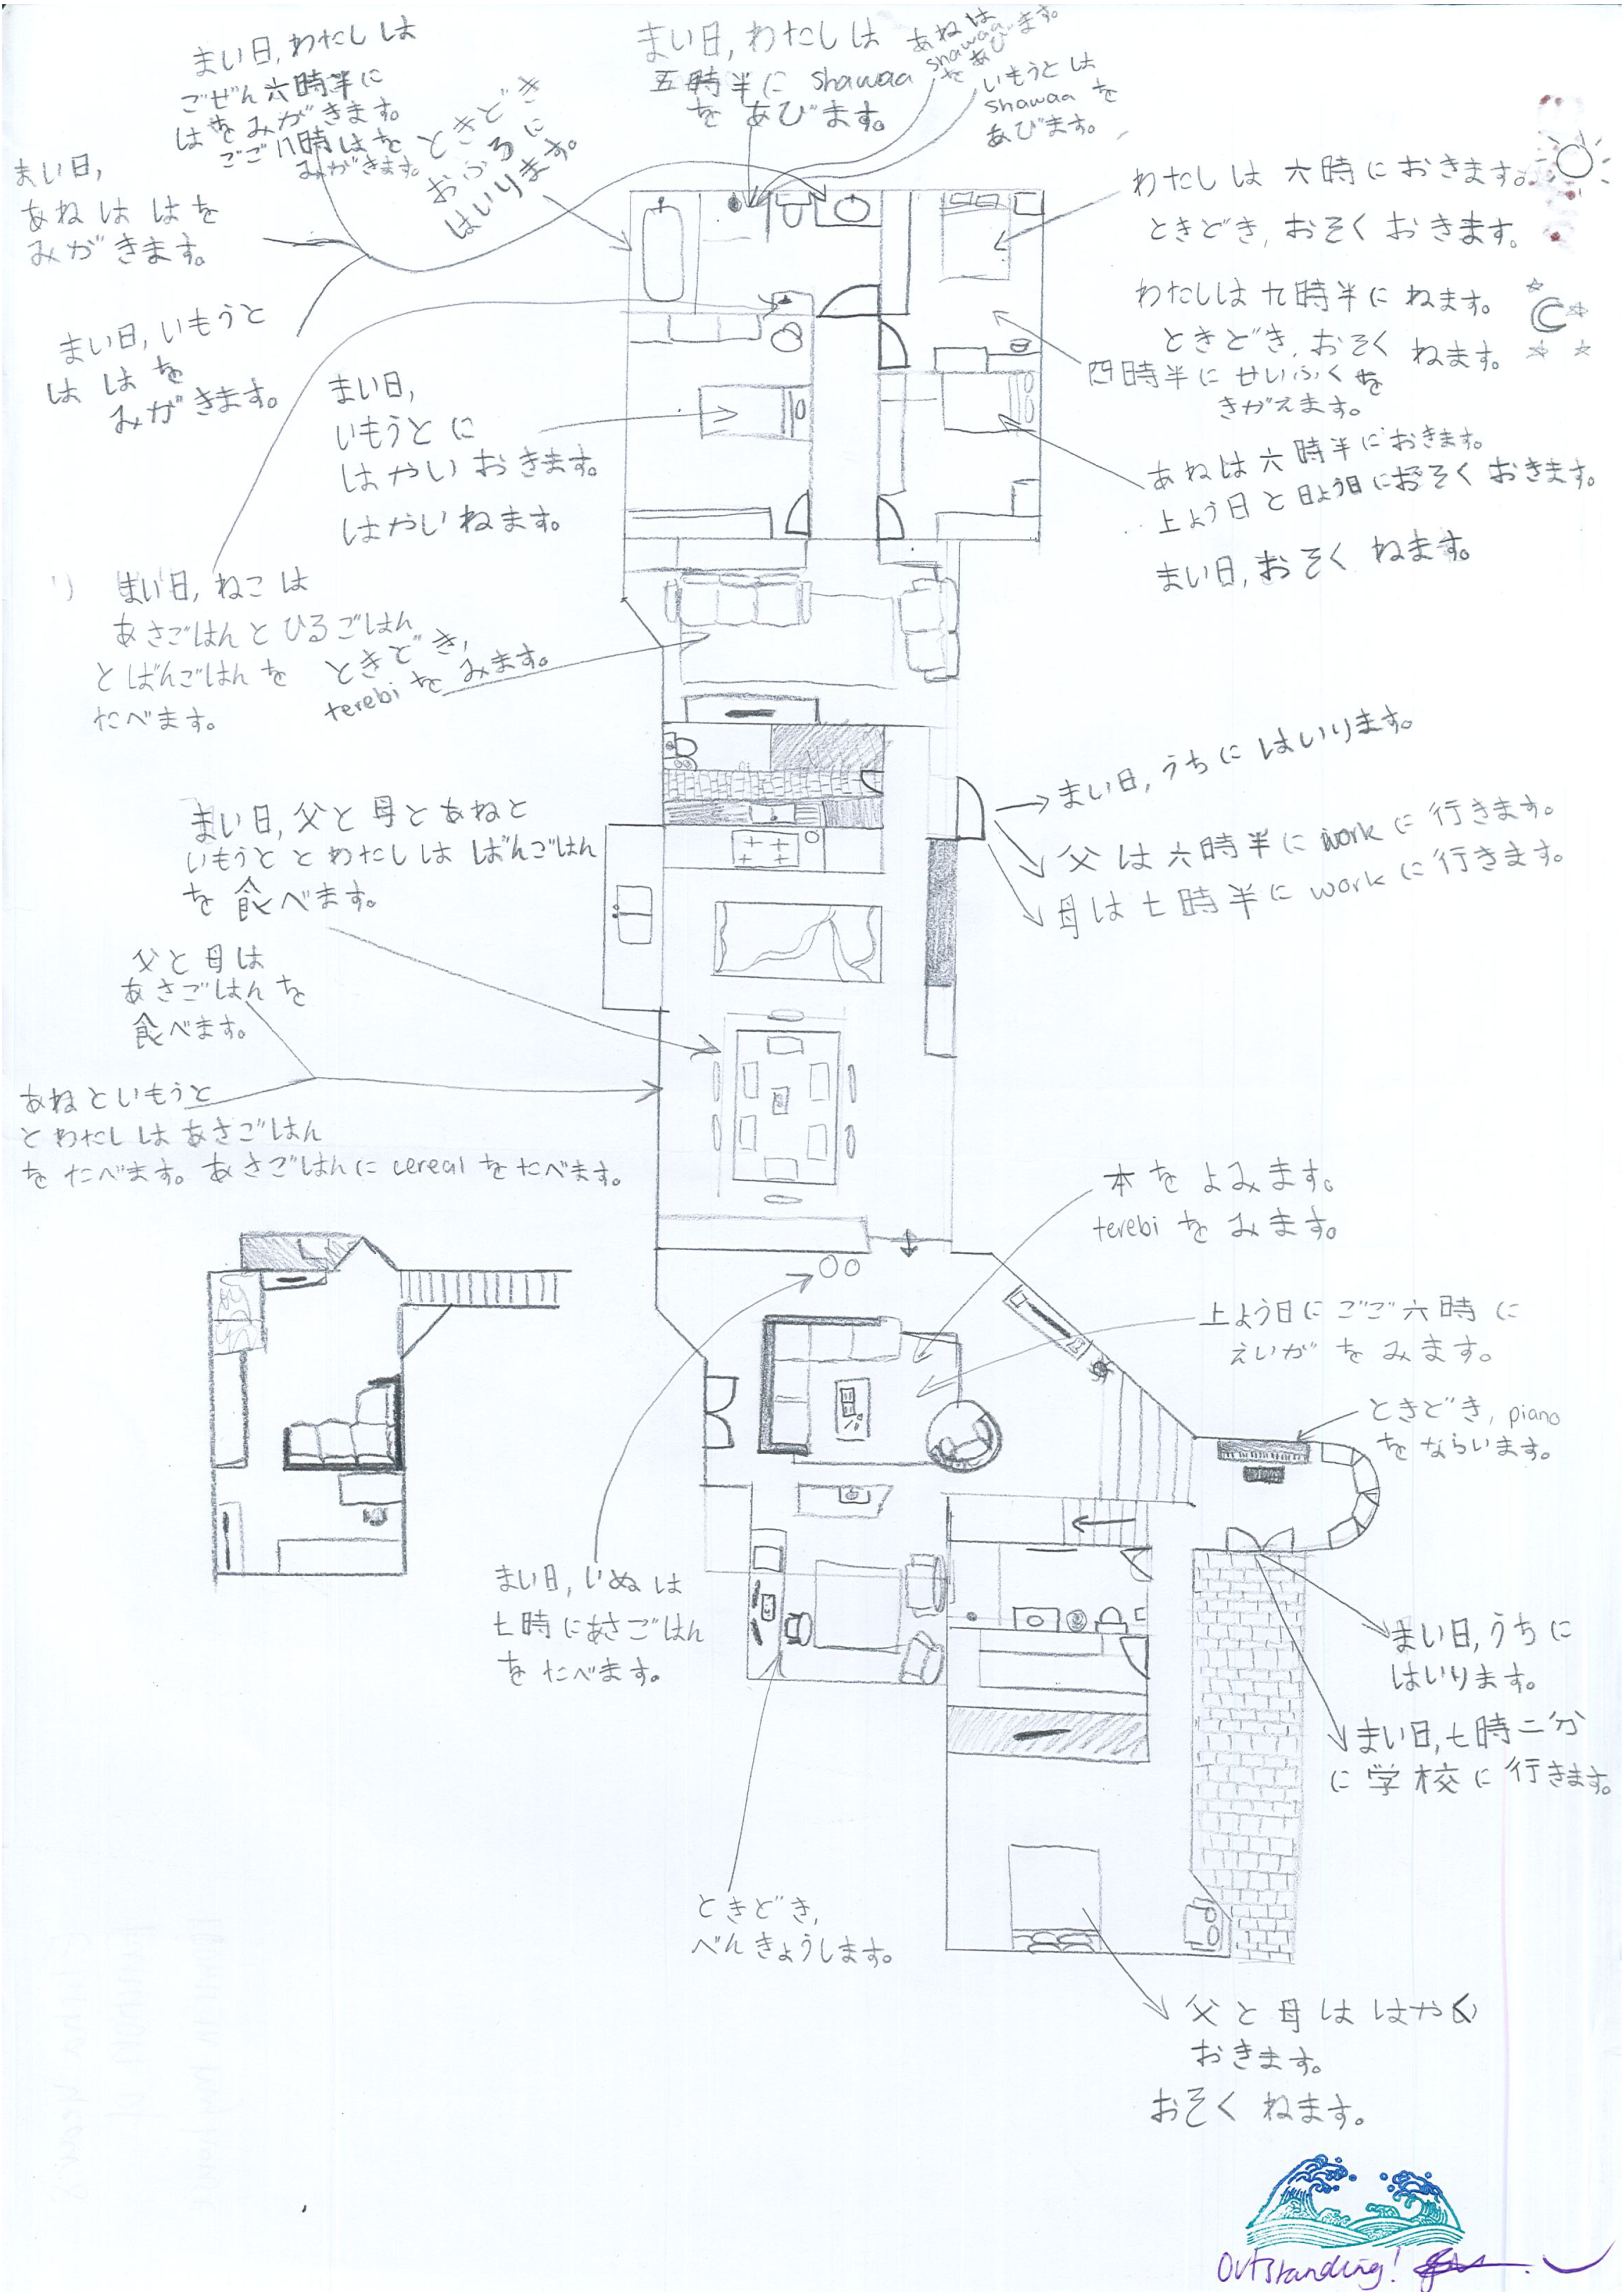 まい日,わたしは
ごぜん六時半に
はをみがきます。
ごご八時はを
みがきます。
まい日,
あねははを
みがきます。
まい日,いもうと
ははを
みがきます。
ときどき
おふろに
はいります。
まい日,わたしは
五時半に shawaa
をあびます。
あねは
shawaa
をあびます。
いもうとは
shawaa を
あびます。
わたしは六時におきます。
ときどき,おそくおきます。
わたしは九時半にねます。
ときどき,おそくねます。
四時半にせいふくを
きがえます。
あねは六時半におきます。
上よう日と日よう日におそくおきます。
まい日,おそくねます。
まい日,
いもうとに
はやいおきます。
はやいねます。
まい日,ねこは
あさごはんとひるごはん
とばんごはんを
たべます。
ときどき,
terebiをみます。
まい日,うちにはいります。
父は六時半にworkに行きます。
母は七時半にworkに行きます。
まい日,父と母とあねと
いもうととわたしはばんごはん
を食べます。
父と母は
あさごはんを
食べます。
あねといもうと
とわたしはあさごはん
をたべます。あさごはんにcerealをたべます。
本をよみます。
terebiをみます。
上よう日にごご六時に
えいがをみます。
ときどき,piano
をならいます。
まい日,いぬは
七時にあさごはん
をたべます。
まい日,うちに
はいります。
まい日,七時二分
に学校に行きます。
ときどき,
べんきょうします。
父と母ははやく
おきます。
おそくねます。
Outstanding!